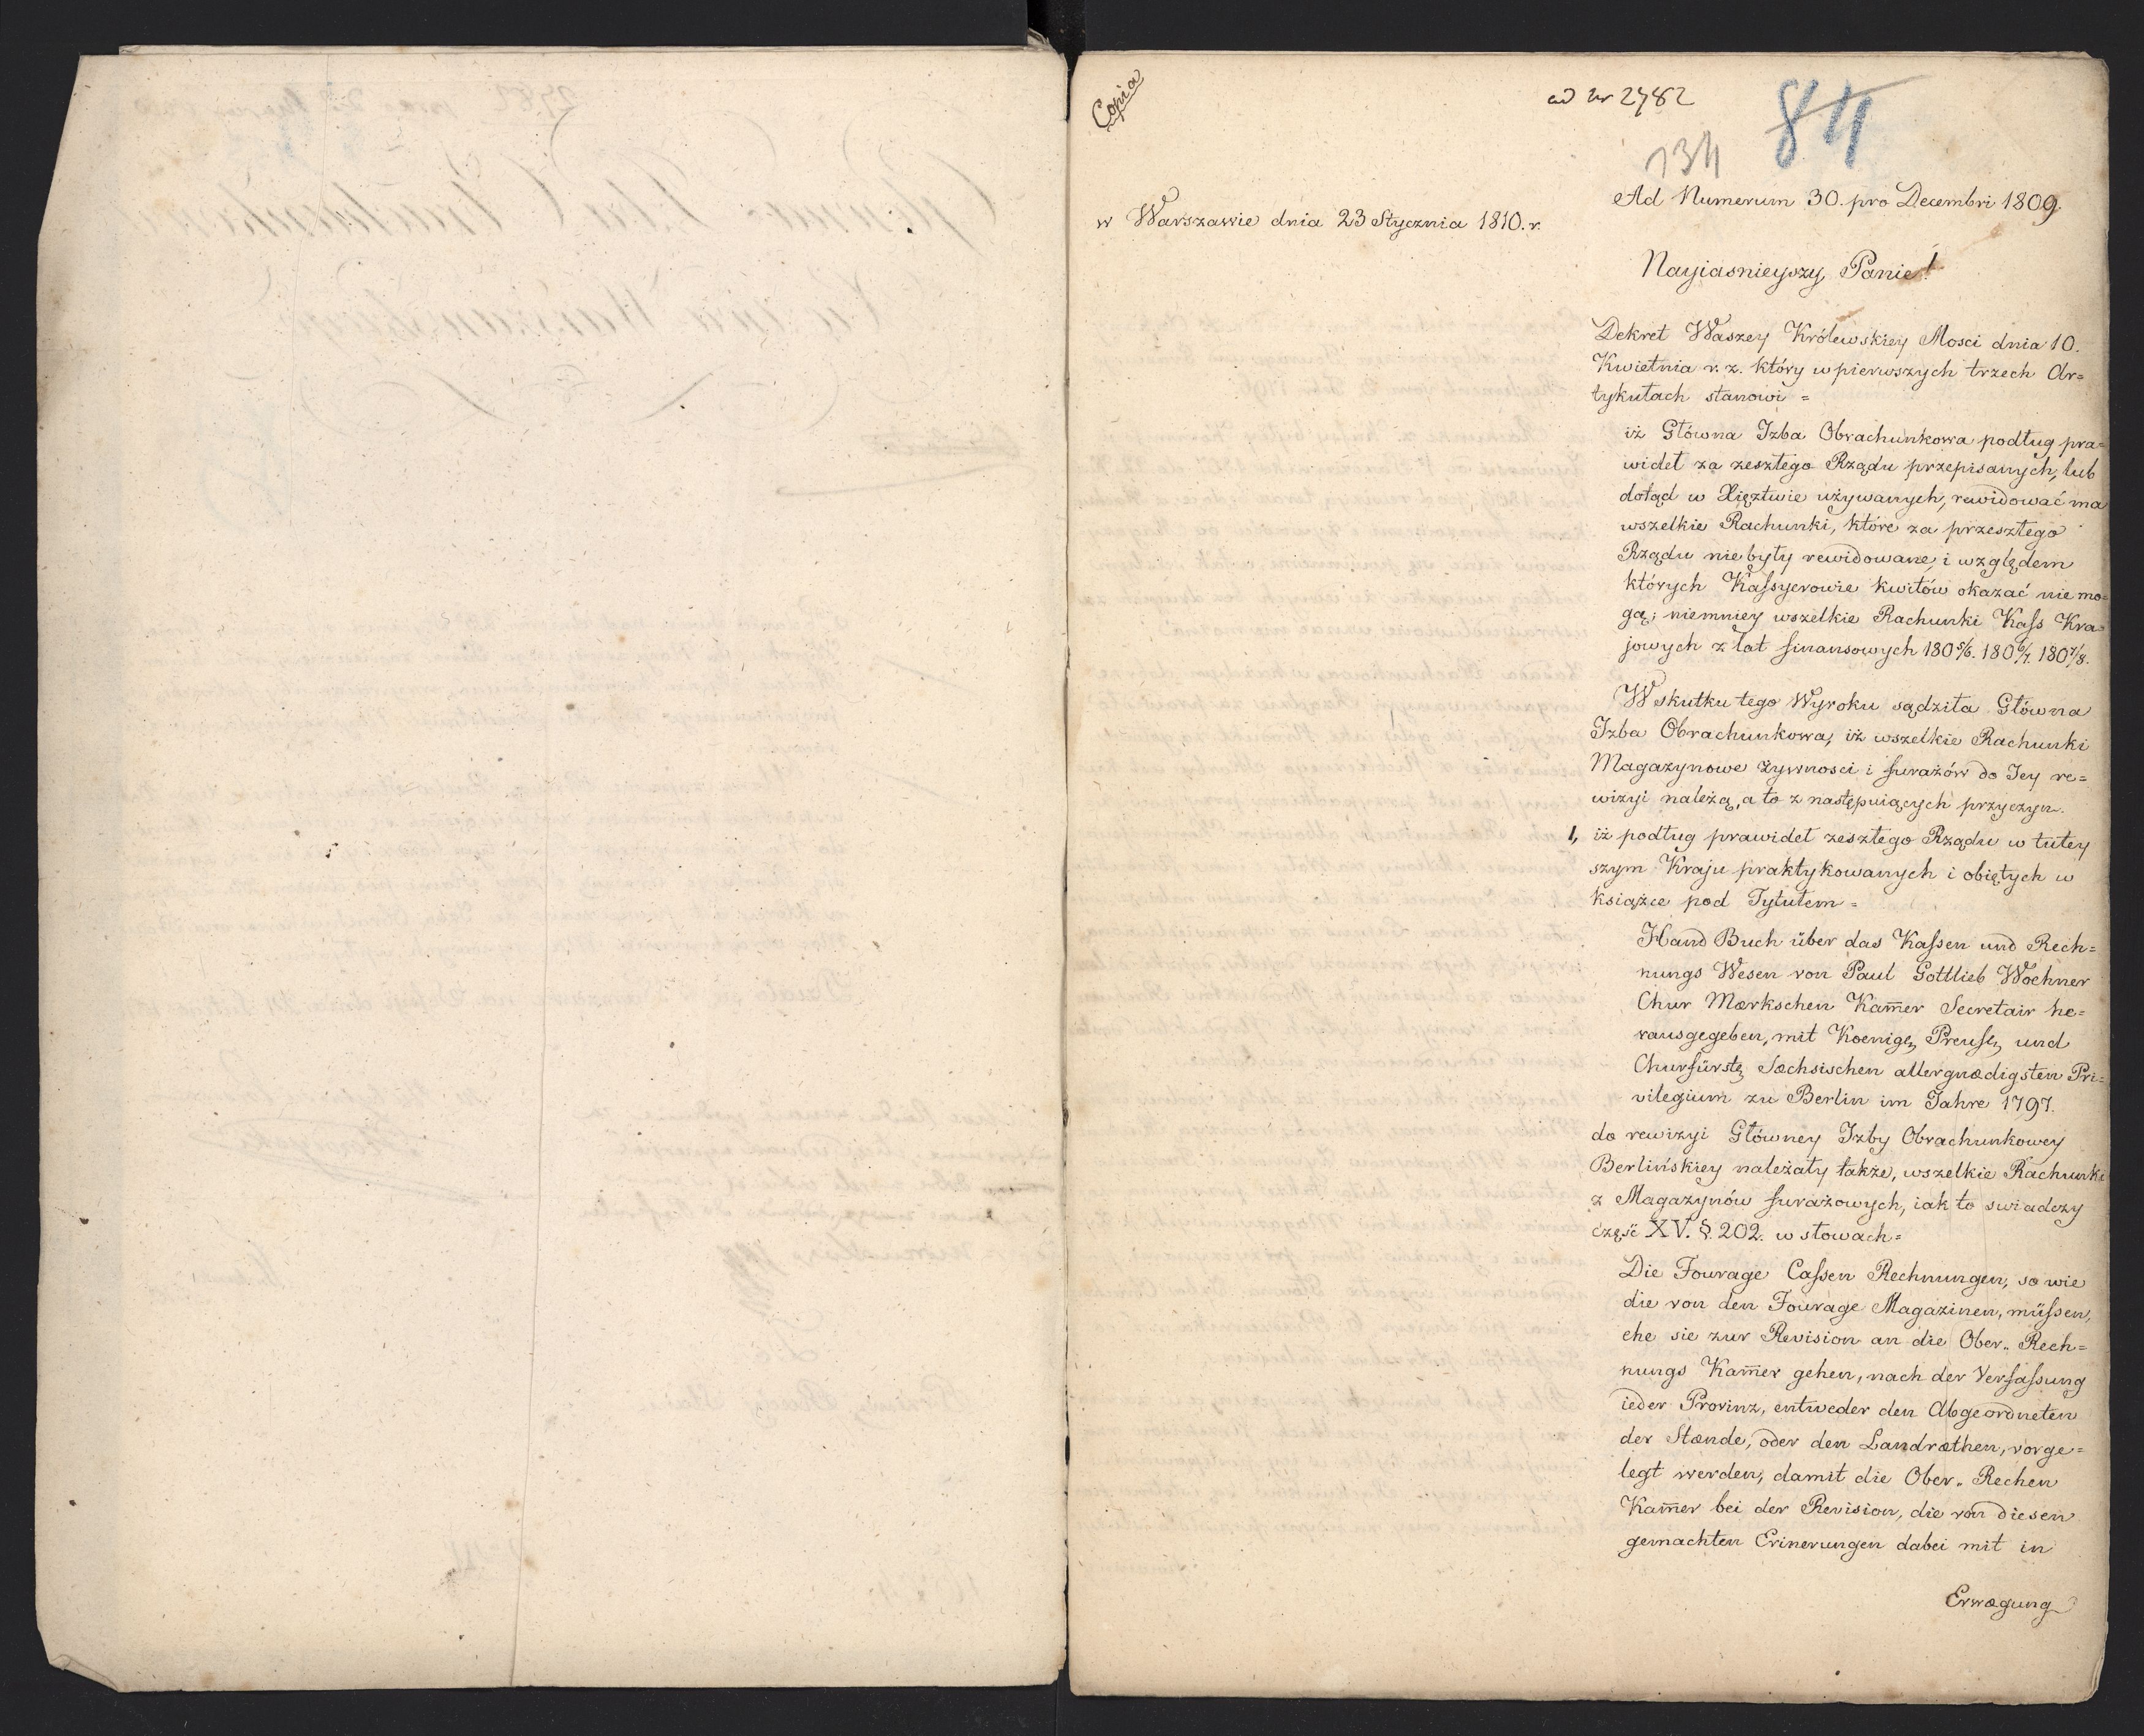 Copia
ad nr 2782
84
134
Ad Numerum 30. pro Decembri 1809.
w Warszawie dnia 23 Stycznia 1810. r.
Nayiasnieyszy Panie!
Dekret Waszey Królewskiey Mosci dnia 10.
Kwietnia r. z. który w pierwszych trzech Ar=
tykułach stanowi =
iż Główna Izba Obrachunkowa podług pra=
wideł za zeszłego Rządu przepisanych, lub
dotąd w Xięztwie używanych, rewidować ma
wszelkie Rachunki, które za przeszłego
Rządu nie były rewidowane, i względem
których Kaſsyerowie kwitów okazać nie mo=
gą; niemniey wszelkie Rachunki Kaſs Kra=
jowych z lat finansowych 180 5/6. 180 6/7. 180 7/8.
W skutku tego Wyroku sądziła Główna
Izba Obrachunkowa, iż wszelkie Rachunki
Magazynowe żywnosci i furażów do Jey re=
wizyi należą, a to z następuiących przyczyn.
1, iż podług prawideł zeszłego Rządu w tutey
szym Kraju praktykowanych i obiętych w
książce pod Tytułem =
Hand Buch über das Kaſsen und Rech=
nungs Wesen von Paul Gottlieb Woehner
Chur Mærkschen Kam̄er Secretair he=
rausgegeben, mit Koenigl. Preuſs. und
Churfürstl. Sæchsischen allergnædigsten Pri=
vilegium zu Berlin im Jahre 1797.
do rewizyi Główney Izby Obrachunkowey
Berlińskiey należały także, wszelkie Rachunki
z Magazynów furażowych, iak to swiadczy
część XV. §. 202. w słowach =
Die Fourage Caſsen Rechnungen, so wie
die von den Fourage Magazinen, müſsen,
ehe sie zur Revision an die Ober„ Rech=
nungs Kam̄er gehen, nach der Verfaſsung
ieder Provinz, entweder den Abgeordneten
der Stænde, oder den Landræthen, vorge=
legt werden, damit die Ober„ Rechen
Kam̄er bei der Revision, die von diesen
gemachten Erinerungen dabei mit in
Erwægung